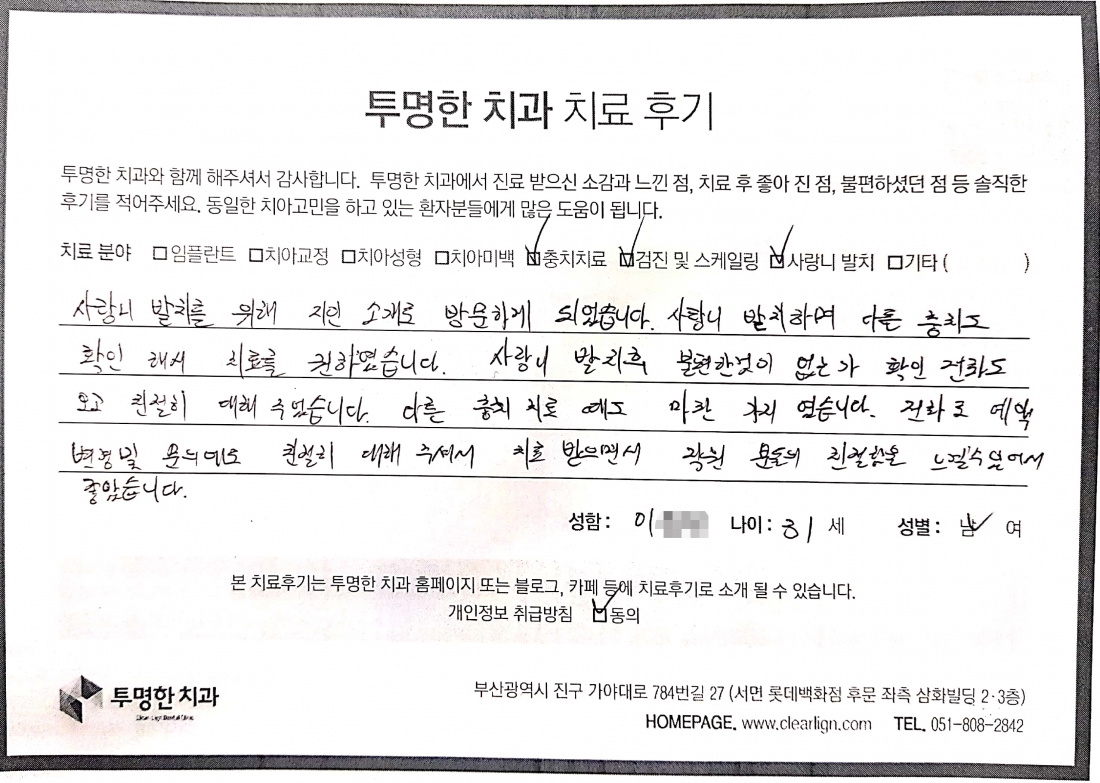 투명한 치과 치료 후기
투명한 치과와 함께 해주셔서 감사합니다. 투명한 치과에서 진료 받으신 소감과 느낀 점, 치료 후 좋아 진 점, 불편하셨던 점 등 솔직한
후기를 적어주세요. 동일한 치아고민을 하고 있는 환자분들에게 많은 도움이 됩니다.
치료 분야 □임플란트 □치아교정 □치아성형 □치아미백 ☑충치치료 ☑검진 및 스케일링 ☑사랑니 발치 □기타 ( )
사랑니 발치를 위해 지인 소개로 방문하게 되었습니다. 사랑니 발치하며 다른 충치도
확인 해서 치료를 권하였습니다. 사랑니 발치후 불편한것이 없는가 확인 전화도
오고 친절히 대해 주었습니다. 다른 충치 치료 때도 마찬가지 였습니다. 전화로 예약
변경 및 문의에도 친절히 대해 주셔서 치료 받으면서 직원 분들의 친절함을 느낄수 있어서
좋았습니다.
성함: 이 나이: 31 세 성별: 남 여
본 치료후기는 투명한 치과 홈페이지 또는 블로그, 카페 등에 치료후기로 소개 될 수 있습니다.
개인정보 취급방침 ☑동의
투명한 치과
부산광역시 진구 가야대로 784번길 27 (서면 롯데백화점 후문 좌측 삼화빌딩 2·3층)
HOMEPAGE. www.clearlign.com TEL. 051-808-2842